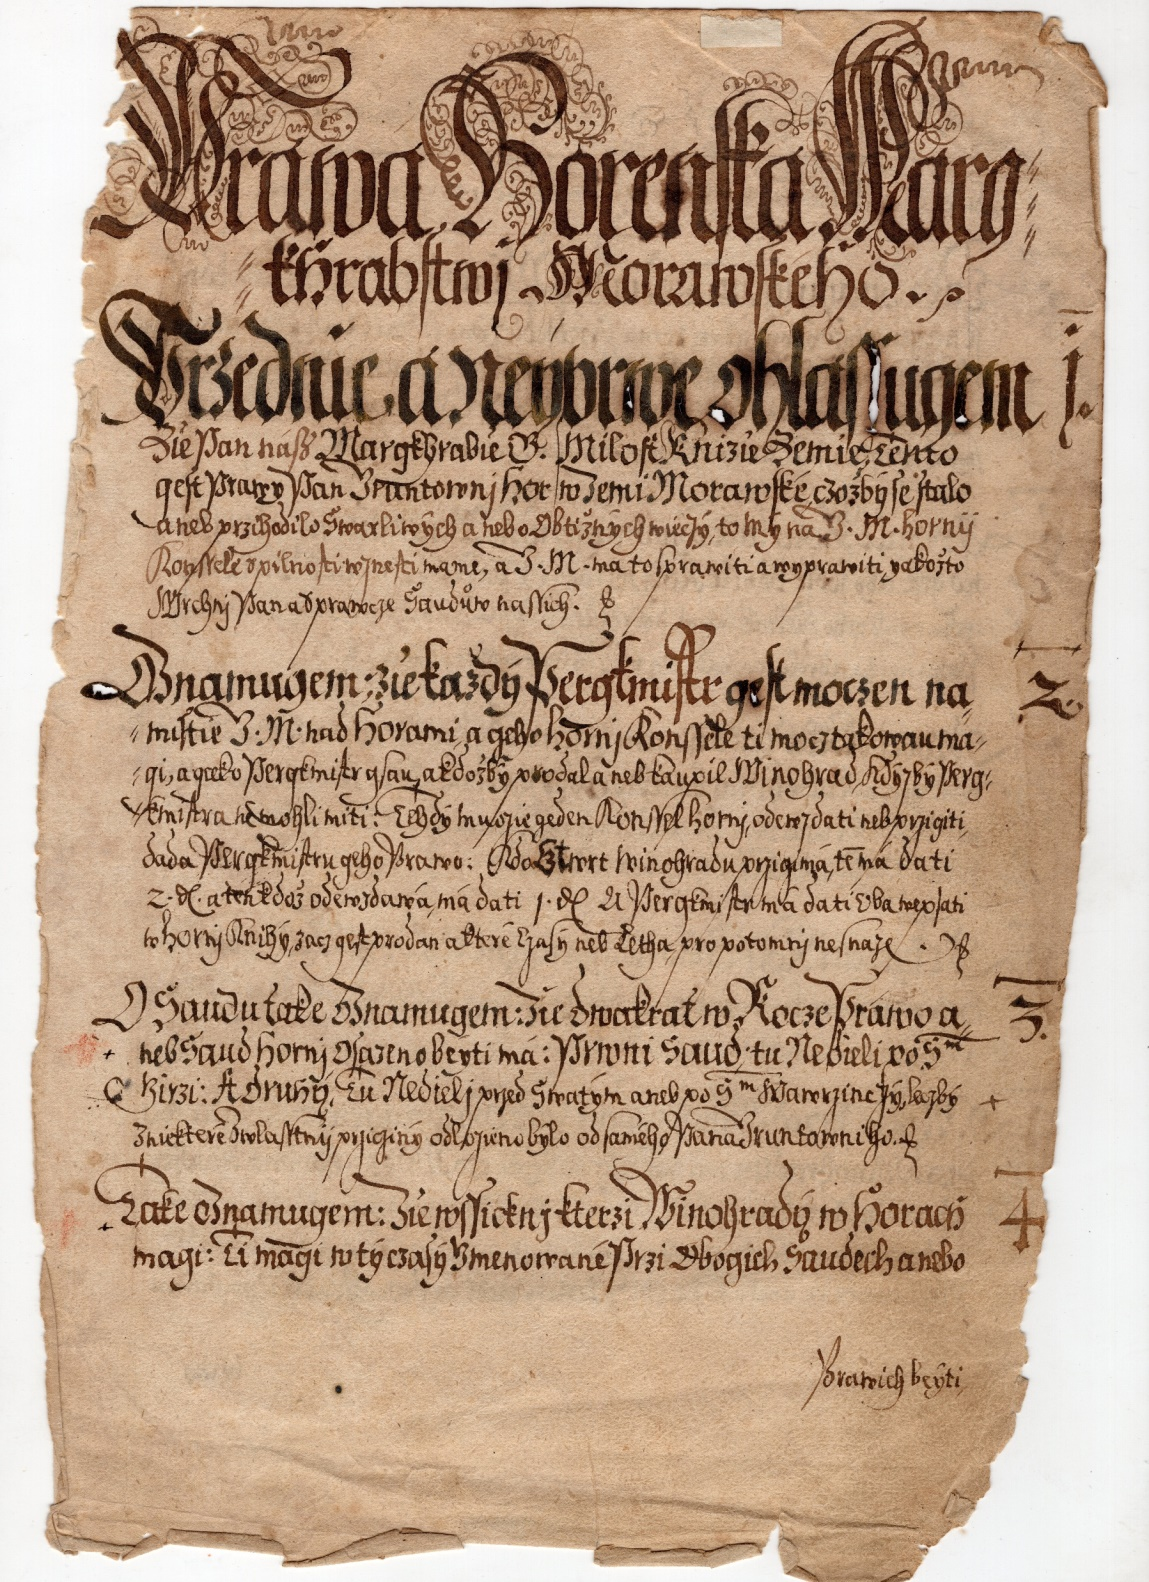 Práwa Horenska Marg-
khrabstwj Morawskeho.
Vrzednie a neyprwe ohlassugem 1.
Zie Pan náss Margkhrabie G: Milost Knizie Zemie Tento
gest Prawy Pan Gruntownj Hor w Zemi Morawske, czozby se stalo
aneb przihodilo Swarliwých anebo Obtižných wieczý, to mý na G. M. hornij
Konssele s pilnosti wznesti máme, a G. M. ma to sprawiti a wyprawiti, yakožto
Wrchnj Pan a sprawcze Sauduow nassich.
Oznamugem: zie každý Pergkmistr gest moczen na 2.
mistie G. M. nad Horami, a geho hornj Konssele ti mocz takowau ma-
gi, a gako Pergkmistr gsau, a kdožbý prodal aneb kaupil Winohrad, kdyžbý Perg-
kmistra nemohli miti: Tehdý muozie geden Konssel hornj, odewzdati neb przigiti,
dada Pergkmistru geho Prawo: Kdo Sstwrt winohradu przigimá, te má dati
2 d. a ten kdož odewzdawá, má dati 1 d. A Pergkmistr má dati Oba wepsati
w hornj Knihý, zacz gest prodan a které Czasý neb Letha, pro potomnj nesnaze.
O Saudu take Oznamugem: Zie dwakrat w Rocze Práwo a- 3.
neb Saud hornj Osazen o beyti má: Prwni Saud, tu Nedieli po Sm
Girzi: A druhý, Tu Nedielj przed Swatým aneb po Sm Wawrzinczy, leczbý
z niekteré zwlasstnij przicziný odlozieno býlo od saméhо Pana Gruntowniho.
Take Oznamugem: Zie wssicknj kterzi Winohradý w Horach 4
magi: Ti magi w tý czasý Gmenowané Przi Obogich Saudech anebo
Prawich beyti